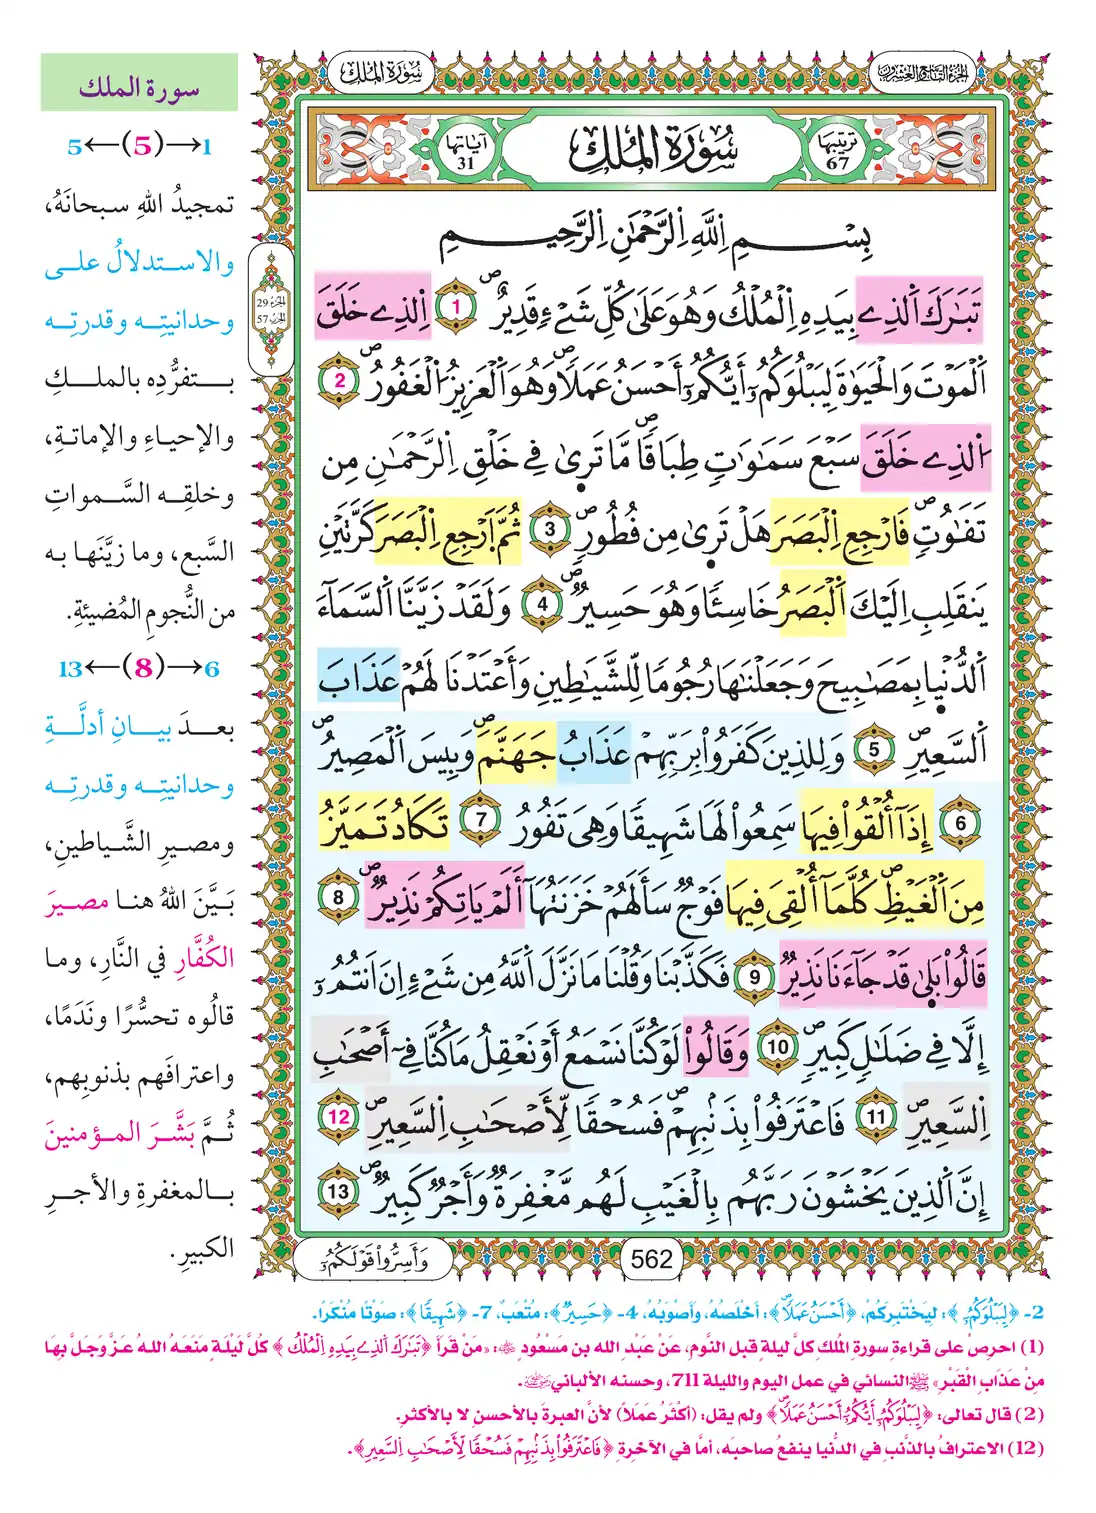 الجزء التاسع والعشرون
سورة الملك
ترتيبها
67
سُورَةُ الْمُلْكِ
آياتها
31
بِسْمِ اِ۬للَّهِ اِ۬لرَّحْمَٰنِ اِ۬لرَّحِيمِ
تَبَٰرَكَ اَ۬لذِے بِيَدِهِ اِ۬لْمُلْكُ وَهُوَ عَلَىٰ كُلِّ شَےْءٖ قَدِيرٌۖ 1 اِ۬لذِے خَلَقَ
اَ۬لْمَوْتَ وَالْحَيَوٰةَ لِيَبْلُوَكُمُۥٓ أَيُّكُمُۥٓ أَحْسَنُ عَمَلاٗۖ وَهُوَ اَ۬لْعَزِيزُ اُ۬لْغَفُورُۖ 2
اُ۬لذِے خَلَقَ سَبْعَ سَمَٰوَٰتٖ طِبَاقاٗۖ مَّا تَرَىٰ فِے خَلْقِ اِ۬لرَّحْمَٰنِ مِن
تَفَٰوُتٖۖ فَارْجِعِ اِ۬لْبَصَرَ هَلْ تَرَىٰ مِن فُطُورٖۖ 3 ثُمَّ اَ۪رْجِعِ اِ۬لْبَصَرَ كَرَّتَيْنِ
يَنقَلِبِ اِلَيْكَ اَ۬لْبَصَرُ خَاسِئاٗ وَهُوَ حَسِيرٞۖ 4 وَلَقَدْ زَيَّنَّا اَ۬لسَّمَآءَ
اَ۬لدُّنْيَا بِمَصَٰبِيحَ وَجَعَلْنَٰهَا رُجُوماٗ لِّلشَّيَٰطِينِ وَأَعْتَدْنَا لَهُمْ عَذَابَ
اَ۬لسَّعِيرِۖ 5 وَلِلذِينَ كَفَرُواْ بِرَبِّهِمْ عَذَابُ جَهَنَّمَۖ وَبِيسَ اَ۬لْمَصِيرُۖ
6 إِذَآ أُلْقُواْ فِيهَا سَمِعُواْ لَهَا شَهِيقاٗ وَهِىَ تَفُورُ 7 تَكَادُ تَمَيَّزُ
مِنَ اَ۬لْغَيْظِۖ كُلَّمَآ أُلْقِىَ فِيهَا فَوْجٞ سَأَلَهُمْ خَزَنَتُهَآ أَلَمْ يَاتِكُمْ نَذِيرٞۖ 8
قَالُواْ بَلَىٰ قَدْ جَآءَنَا نَذِيرٞ 9 فَكَذَّبْنَا وَقُلْنَا مَا نَزَّلَ اَ۬للَّهُ مِن شَےْءٍ اِنَ اَنتُمُۥٓ
إِلَّا فِے ضَلَٰلٖ كَبِيرٖۖ 10 وَقَالُواْ لَوْ كُنَّا نَسْمَعُ أَوْ نَعْقِلُ مَا كُنَّا فِےٓ أَصْحَٰبِ
اِ۬لسَّعِيرِۖ 11 فَاعْتَرَفُواْ بِذَنۢبِهِمْۖ فَسُحْقاٗ لِّأَصْحَٰبِ اِ۬لسَّعِيرِۖ 12
إِنَّ اَ۬لذِينَ يَخْشَوْنَ رَبَّهُم بِالْغَيْبِ لَهُم مَّغْفِرَةٞ وَأَجْرٞ كَبِيرٞۖ 13
562
وَأَسِرُّواْ قَوْلَكُمُۥٓ
الجزء 29
الحزب 57
سورة الملك
1→(5)←5
تمجيدُ اللهِ سبحانَهُ،
والاستدلالُ على
وحدانيتِه وقدرتِه
بتفرُّدِه بالملكِ
والإحياءِ والإماتةِ،
وخلقِه السَّمواتِ
السَّبعِ، وما زيَّنَها به
من النُّجومِ المُضيئةِ.
6→(8)←13
بعدَ بيانِ أدلَّةِ
وحدانيتِه وقدرتِه
ومصيرِ الشَّياطينِ،
بَيَّنَ اللهُ هنا مصيرَ
الكُفَّارِ في النَّارِ، وما
قالُوه تحسُّرًا ونَدَمًا،
واعترافَهم بذنوبِهم،
ثُمَّ بَشَّرَ المؤمنينَ
بالمغفرةِ والأجرِ
الكبيرِ.
2- ﴿لِيَبْلُوَكُمُۥٓ﴾: ليَخْتَبِرَكُمْ، ﴿أَحْسَنُ عَمَلاٗۖ﴾: أَخْلَصُهُ، وَأَصْوَبُهُ، 4- ﴿حَسِيرٞ﴾: مُتْعَبٌ، 7- ﴿شَهِيقاٗ﴾: صَوْتًا مُنْكَرًا.
(1) احرِصْ على قراءةِ سورةِ المُلكِ كلَّ ليلةٍ قبل النَّومِ، عنْ عَبْدِ الله بن مَسْعُودٍ رضي الله عنه: «مَنْ قَرَأَ ﴿تَبَٰرَكَ اَ۬لذِے بِيَدِهِ اِ۬لْمُلْكُ﴾ كُلَّ لَيْلَةٍ مَنَعَهُ اللهُ عَزَّ وَجَلَّ بِهَا
مِنْ عَذَابِ القَبْرِ» النسائي في عمل اليوم والليلة 711، وحسنه الألباني.
(2) قال تعالى: ﴿لِيَبْلُوَكُمُۥٓ أَيُّكُمُۥٓ أَحْسَنُ عَمَلاٗۖ﴾ ولم يقل: (أكثرُ عَمَلًا) لأنَّ العبرةَ بالأحسنِ لا بالأكثرِ.
(12) الاعترافُ بالذَّنبِ في الدُّنيا ينفعُ صاحبَه، أمَّا في الآخرةِ ﴿فَاعْتَرَفُواْ بِذَنۢبِهِمْ فَسُحْقاٗ لِّأَصْحَٰبِ اِ۬لسَّعِيرِ﴾.